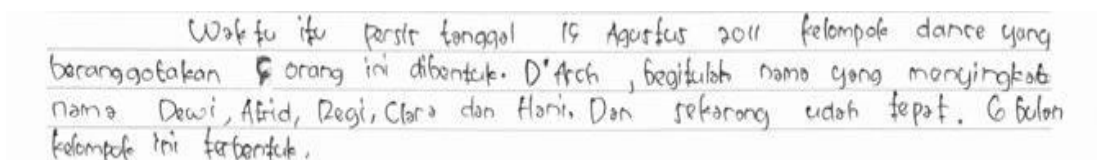 Waktu itu persis tanggal 15 Agustus 2011 kelompok dance yang
beranggotakan 5 orang ini dibentuk. D'Arch, begitulah nama yang menyingkat
nama Dewi, Afrid, Regi, Clara dan Hani. Dan sekarang udah tepat. 6 bulan
kelompok ini terbentuk.